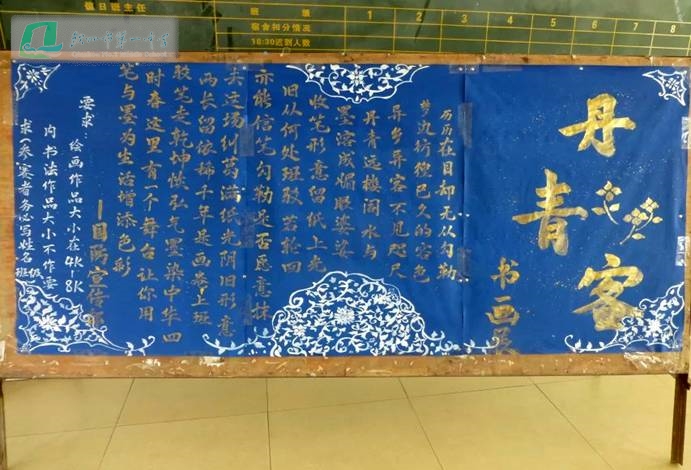 值日班主任
班 值 1 2 3 4 5 6 7 8
宿舍扣分情况
18:30迟到人数
丹
青
客
书画展
历历在目却无从勾勒
梦边彷徨已久的容色
异乡异客不见咫尺
丹青远楼阁水与
墨溶成媚眼姿娑
收笔形意留纸上光
旧从何处斑驳若轮回
亦能信笔勾勒是否愿意抹
去这场纠葛满纸光阴旧形意
两长留依稀千年是画卷上斑
驳笔走乾坤
弘气墨染中华四
时春这里有一个舞台让你用
笔与墨为生活增添色彩
—团购宣传部
要求：绘画作品大小在4K-8K
内 书法作品大小不作要
求（参赛者务必写姓名班级